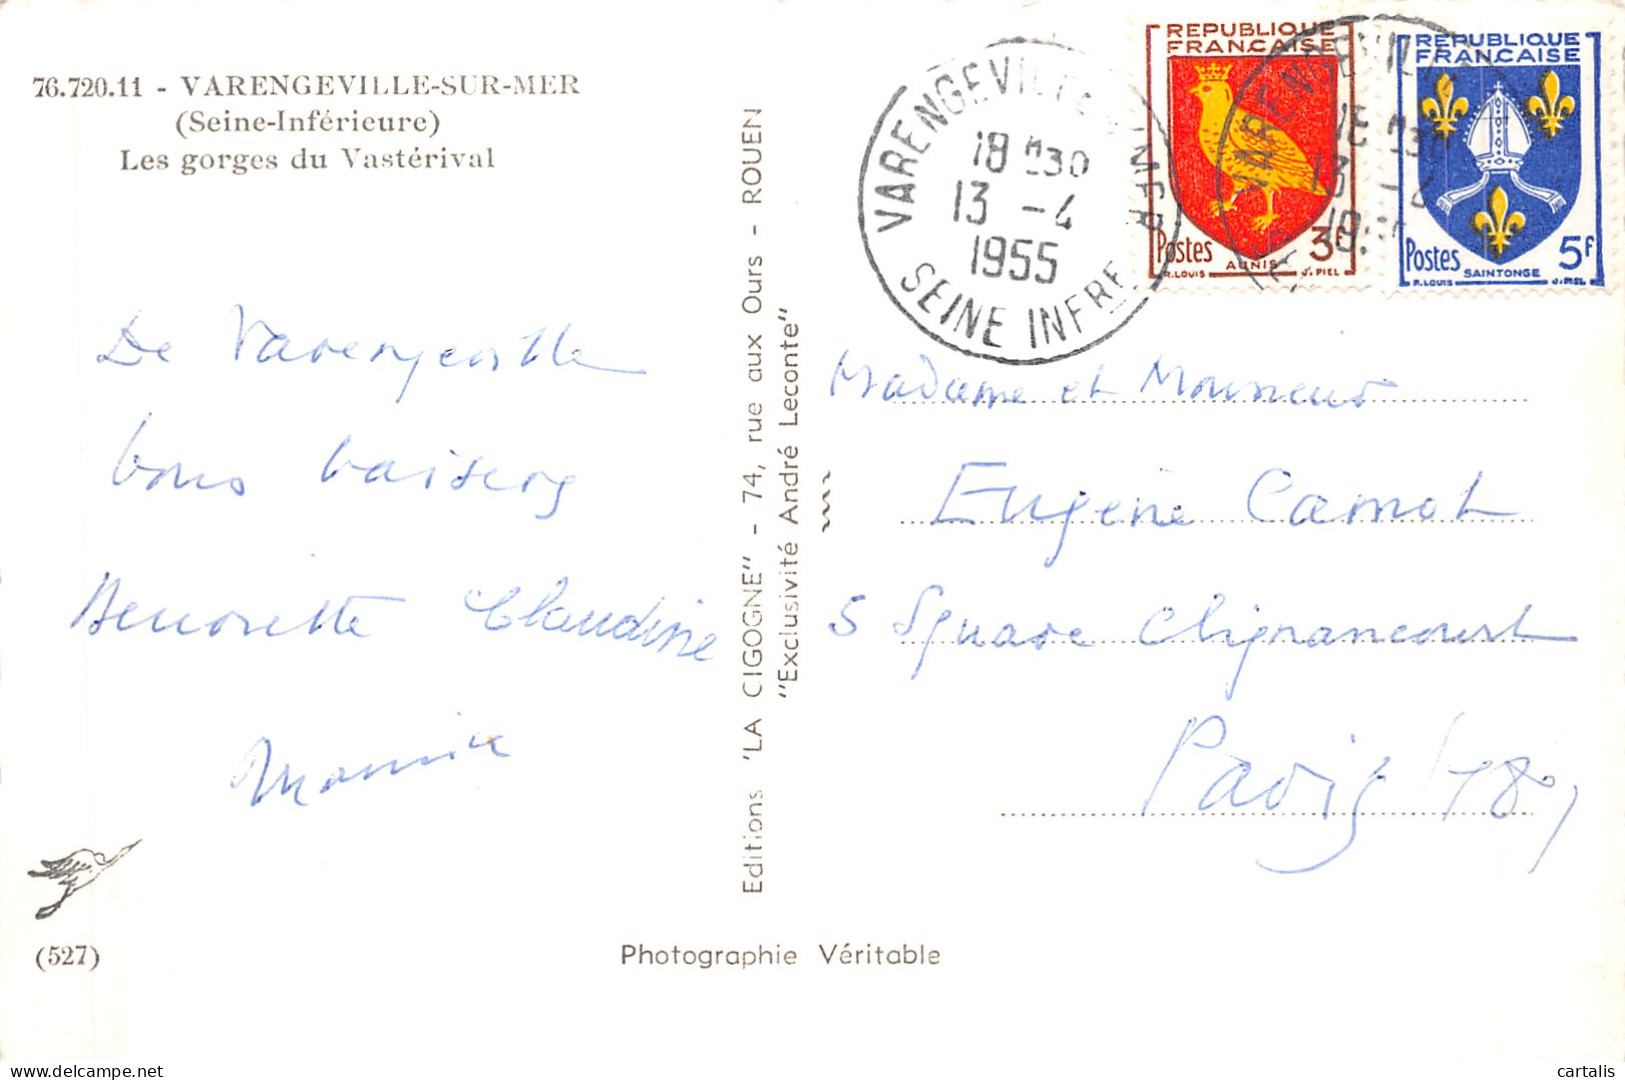 76.720.11 - VARENGEVILLE-SUR-MER
(Seine-Inférieure)
Les gorges du Vastérival
De Varengeville
bons baisers
Henriette Claudine
Mamie
(527)
Photographie Véritable
Editions "LA CIGOGNE" - 74, rue aux Ours - ROUEN
"Exclusivité André Leconte"
VARENGEVILLE S MER
18 H30
13 - 4
1955
SEINE INFRE
REPUBLIQUE
FRANÇAISE
Postes 3F
AUNIS
R.LOUIS J.PIEL
REPUBLIQUE
FRANÇAISE
Postes 5F
SAINTONGE
R.LOUIS J.PIEL
Madame et Monsieur
Eugène Carnot
5 Square Clignancourt
Paris (18e)
cartalis